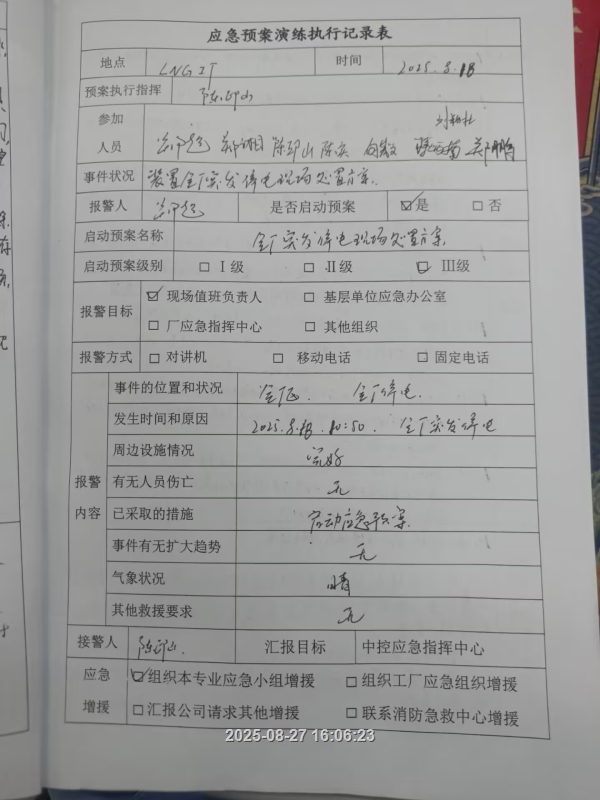 应急预案演练执行记录表
地点 LNG工厂 时间 2025.8.18
预案执行指挥 陈邱山
参加
人员 陈邱山
事件状况 装置全厂突发停电现场处置方案.
报警人 是否启动预案 ☑是 □否
启动预案名称 全厂突发停电现场处置方案.
启动预案级别 □Ⅰ级 □Ⅱ级 ☑Ⅲ级
报警目标 ☑现场值班负责人 □基层单位应急办公室
□厂应急指挥中心 □其他组织
报警方式 □对讲机 □移动电话 □固定电话
报警
内容
事件的位置和状况 全厂停电.
发生时间和原因 2025.8.18. 10:50. 全厂突发停电
周边设施情况 完好
有无人员伤亡 无
已采取的措施 启动应急预案.
事件有无扩大趋势 无
气象状况 晴
其他救援要求 无
接警人 陈邱山. 汇报目标 中控应急指挥中心
应急
增援
☑组织本专业应急小组增援 □组织工厂应急组织增援
□汇报公司请求其他增援 □联系消防急救中心增援
2025-08-27 16:06:23